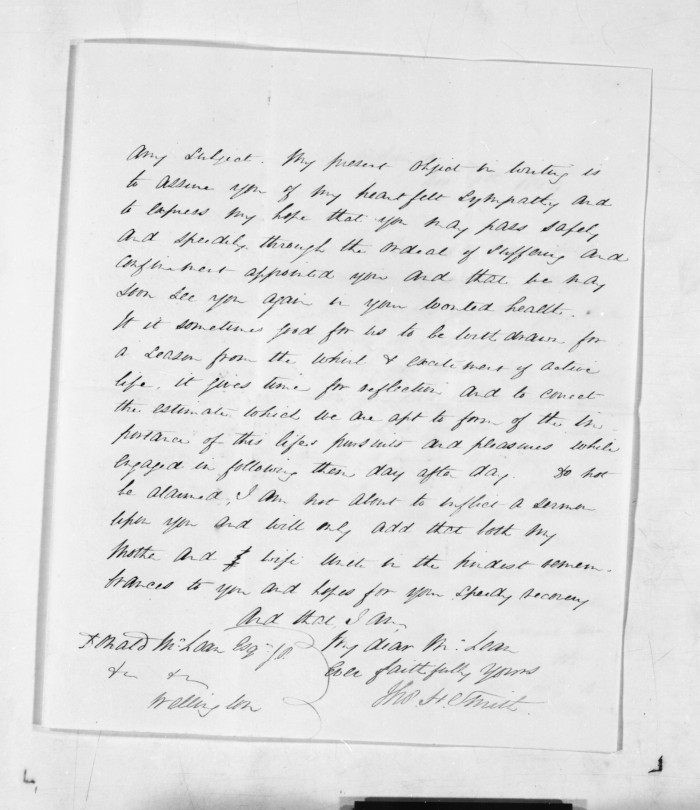 any subject. My present object in writing is
to assure you of my heartfelt sympathy and
to express my hope that you may pass safely
and speedily through the ordeal of suffering and
confinement appointed you and that we may
soon see you again in your wonted health.
It is sometimes good for us to be withdrawn for
a season from the whirl & excitement of active
life, it gives time for reflection and to correct
the estimate which we are apt to form of the im
portance of this life's pursuits and pleasures while
engaged in following them day after day. Do not
be alarmed, I am not about to inflict a sermon
upon you and will only add that both my
Mother and wife unite in the kindest remem-
brances to you and hopes for your speedy recovery
And that I am
My dear McLean
Ever faithfully yours
Thos H. Smith.
Donald McLean Esq
&c &c
Wellington